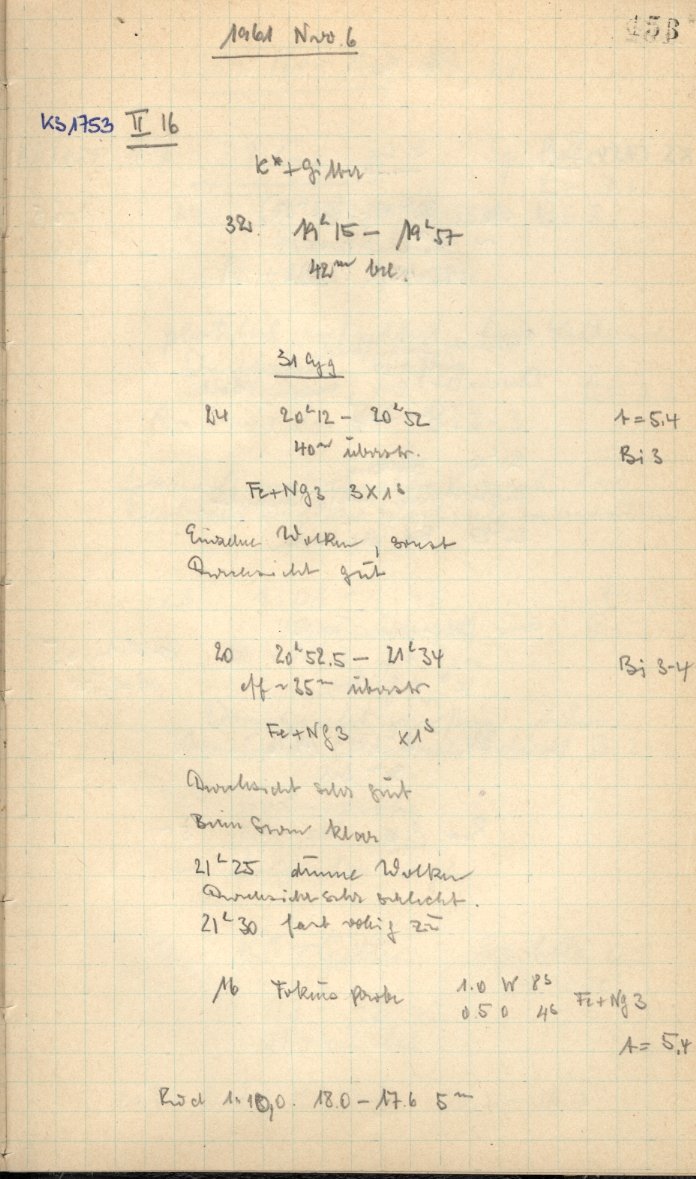 1961 Nov. 6
153
KS1753 II 16
K*+Gitter
32. 19ʰ15 – 19ʰ57
42ᵐ bel.
31 Cyg
24 20ʰ12 – 20ʰ52 t=5.4
40ᵐ überstr. Bi 3
Fe+Ng3 3×1ˢ
Einzelne Wolken, sonst
Durchsicht gut
20 20ʰ52.5 – 21ʰ34 Bi 3-4
eff ~35ᵐ überstr
Fe+Ng3 ×1ˢ
Durchsicht sehr gut
Beim Stern klar
21ʰ25 dünne Wolken
Durchsicht sehr schlecht.
21ʰ30 fast völlig zu
16 Fokusprobe 1.0 W 8ˢ
0.5 0 4ˢ Fe+Ng3
t= 5.4
18.0 – 17.6 5ᵐ